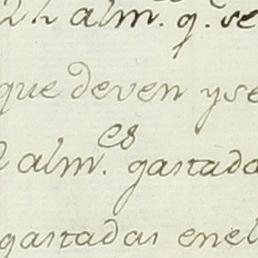 2 h alm. q. se
que deven yse
alm.es gastada
gastadas enel